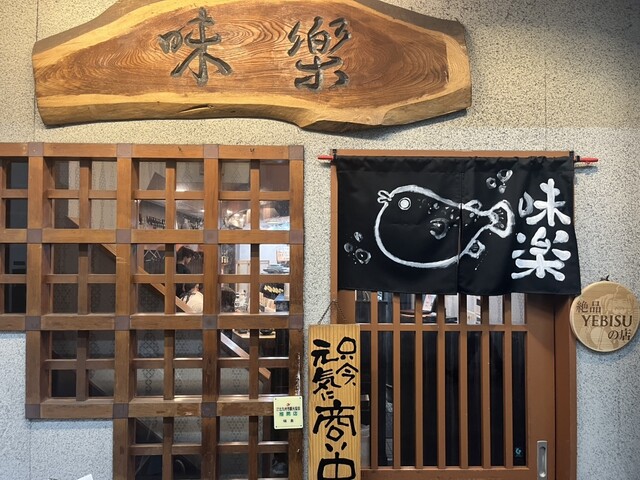 味樂
味楽
絶品
YEBISU
の店
只今、
元気に
商い中
推奨店
味楽